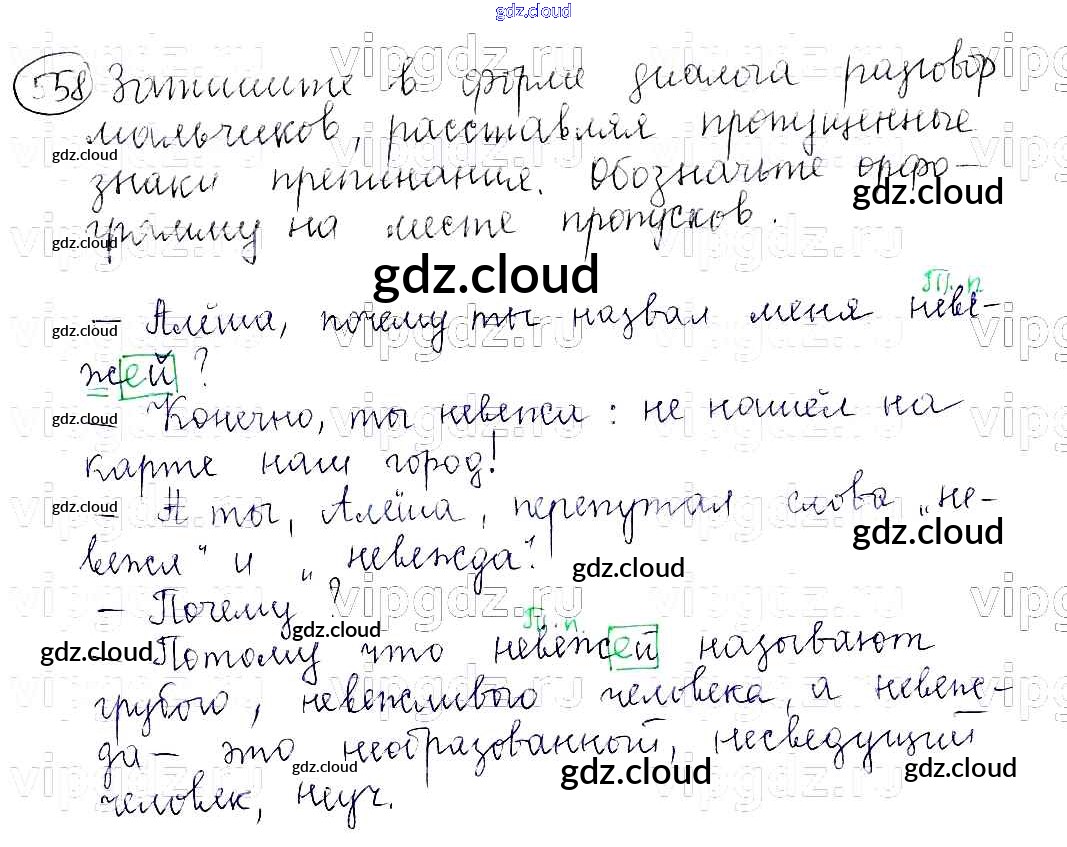 gdz.cloud
558 Запишите в форме диалога разговор
мальчиков, расставляя пропущенные
знаки препинания. Обозначьте орфо-
грамму на месте пропусков.
gdz.cloud
gdz.cloud
gdz.cloud
gdz.cloud
Т. п.
— Алёша, почему ты назвал меня неве-
жей?
gdz.cloud
— Конечно, ты невежа: не нашёл на
карте наш город!
gdz.cloud
— А ты, Алёша, перепутал слова „не-
вежа“ и „невежда“!
gdz.cloud
gdz.cloud
gdz.cloud
— Почему?
gdz.cloud
Т. п.
— Потому что невежей называют
gdz.cloud
грубого, невежливого человека, а невеж-
да — это необразованный, несведущий
человек, неуч.
gdz.cloud
gdz.cloud
gdz.cloud
vipgdz.ru